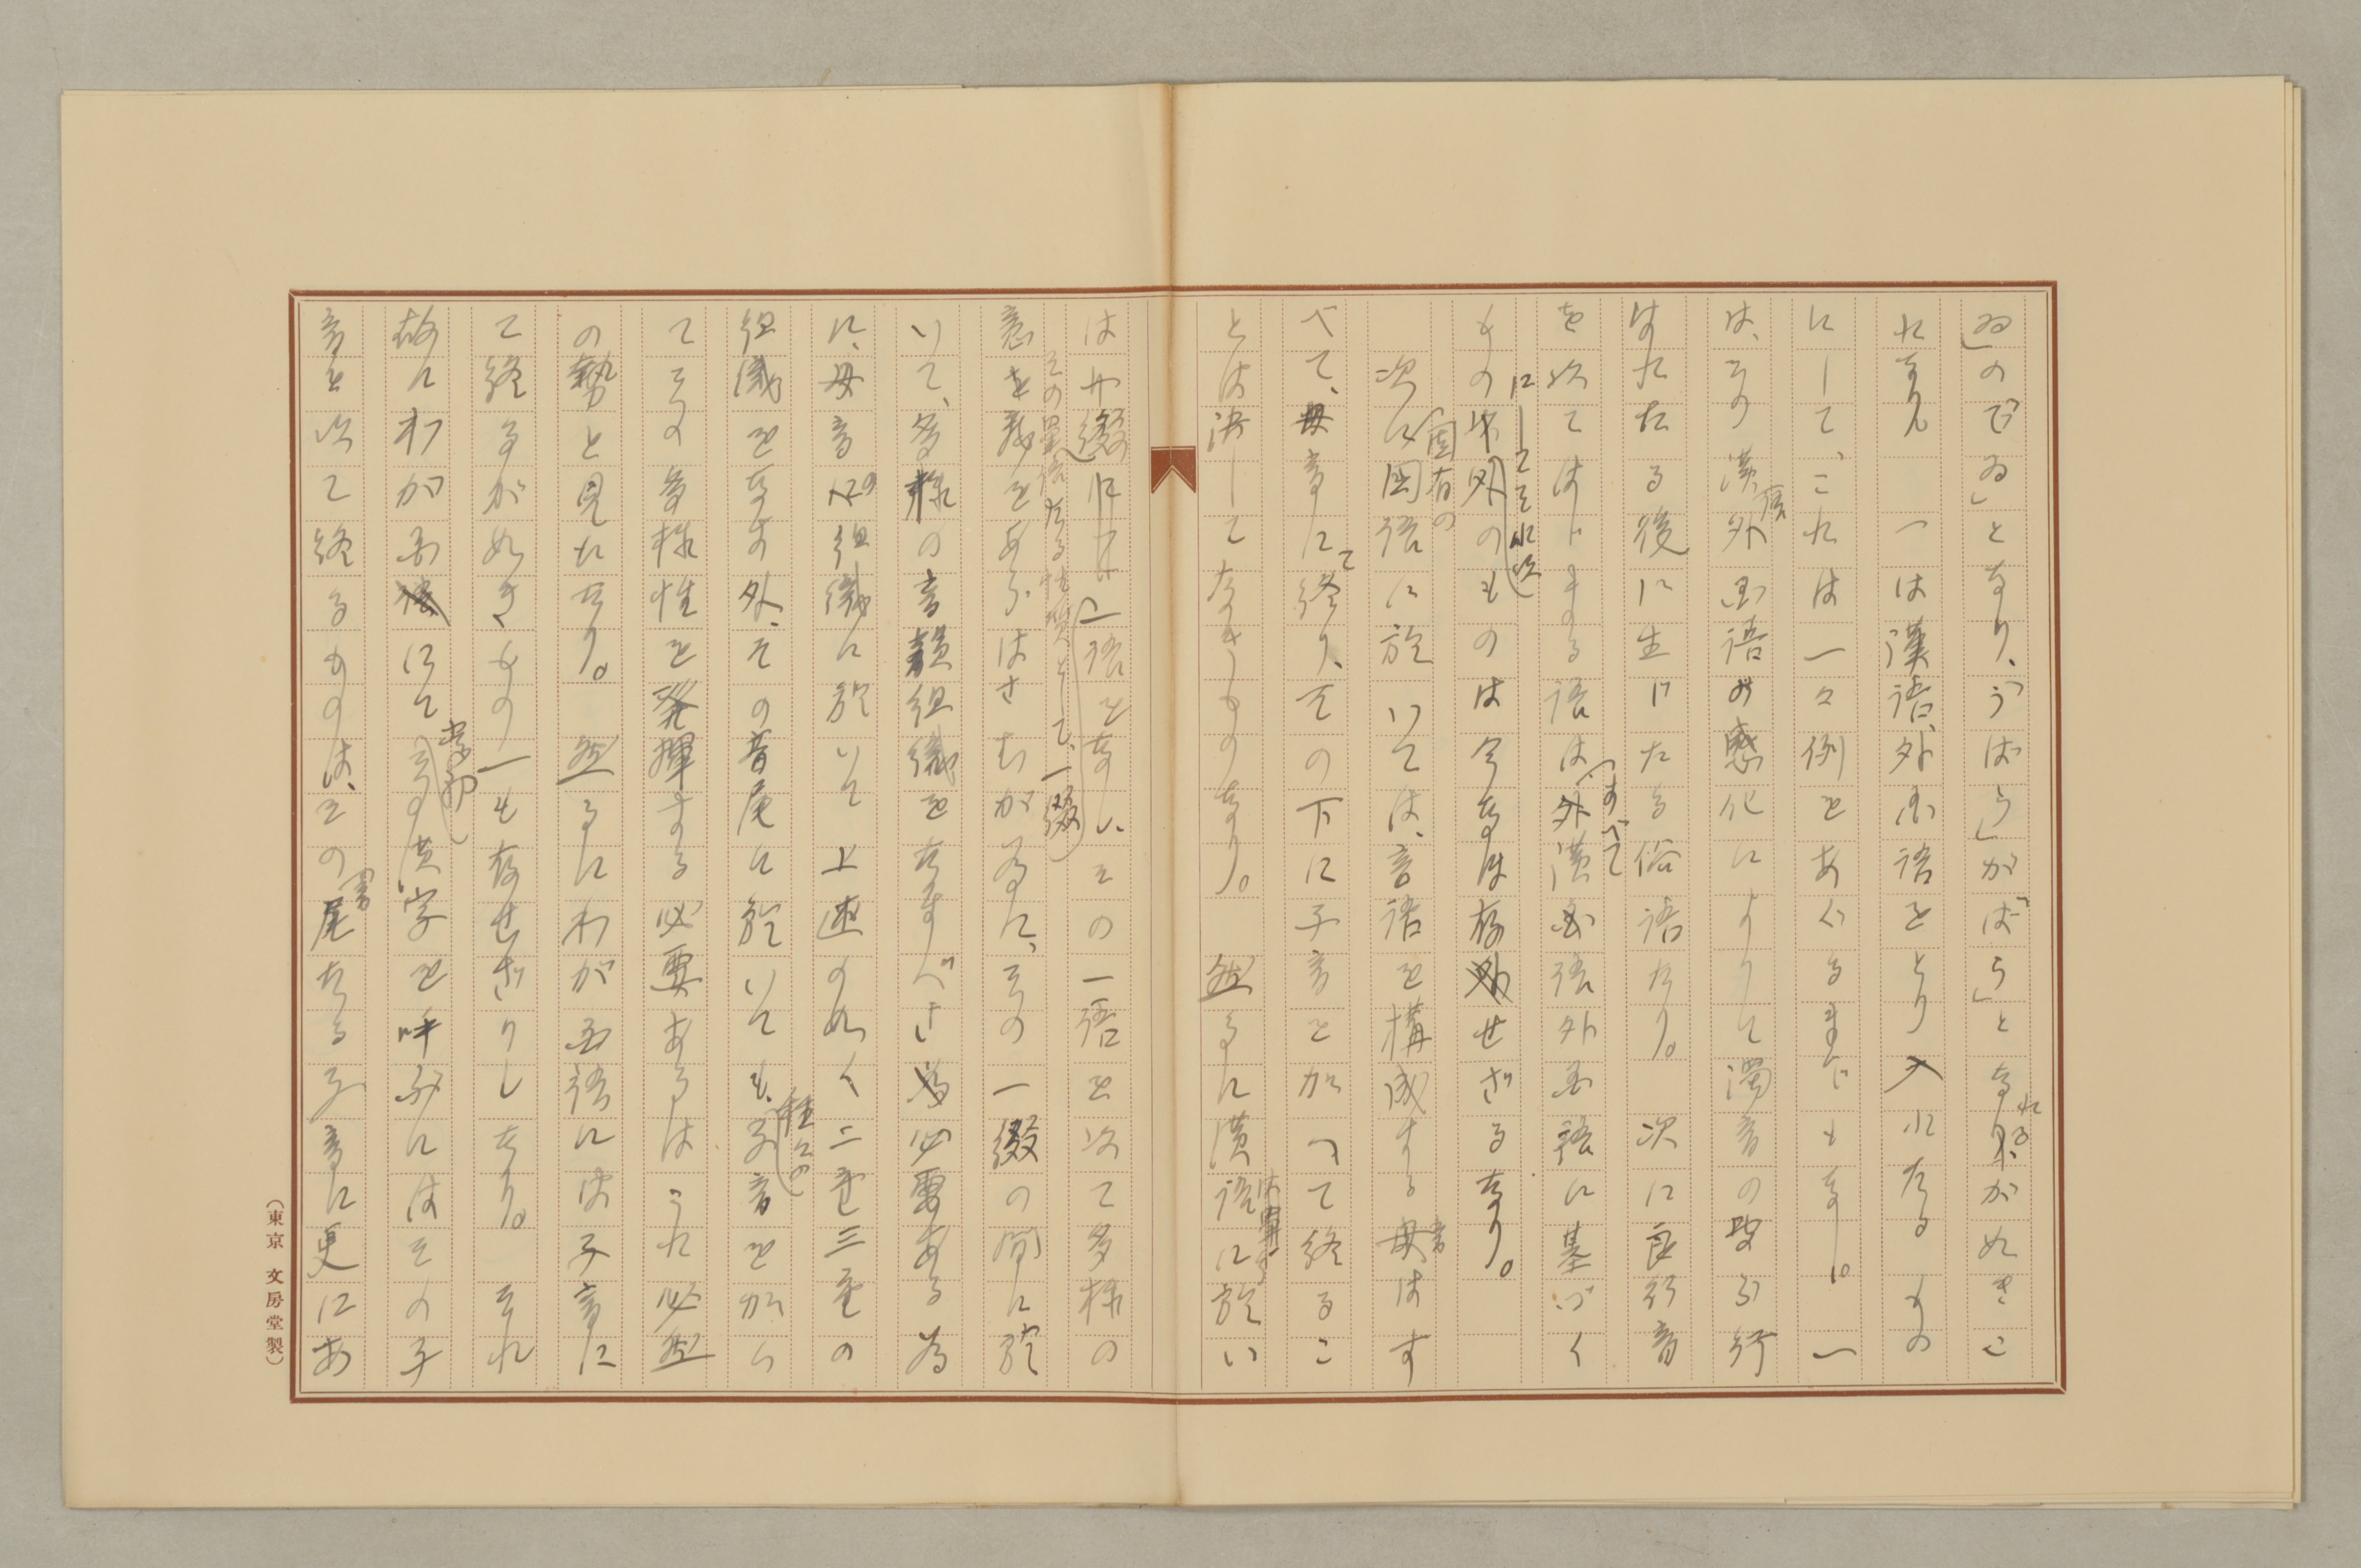 ゐ」の「でゐ」となり、「うばら」が「ばら」となれるが如きこ
れなり。一は漢語、外国語をとり入れたるもの
にして、これは一々例をあぐるまでもなし。一
は、その漢語外国語の感化によりて濁音の聖り行
はれたる後に生じたる俗語なり。次に良行音
を以てはじまる語は(すべて外漢国語外国語に基づく
ものにしてそれ以外のものは今なほ存せざるなり。
次に(固有の国語に於いては、言語を構成する母音はす
べて、母音にて終り、その下に子音を加へて終るこ
とは決してなきものなり。然るに漢語は単に於い
はや綴に一語をなし、その一語を以て多様の
その単語たる性質として、一綴
意義をあらはさむが為に、その一綴の間に於
いて、多様の音韻組織をなすべき必要ある為
に、母音の組織に於いて上述の如く二重三重の
組織をなす外、その音尾に於いても、種々の子音を加へ
てその多様性を発揮する必要あるはこれ必然
の勢と見れたり。然るにわが国語には子音に
て終るが如きもの一も存せざりしなり。それ
故にわが国にて漢字を呼ぶにはその子
音を以て終るものは、その音尾なる子音に更にあ
(東京 文房堂製)